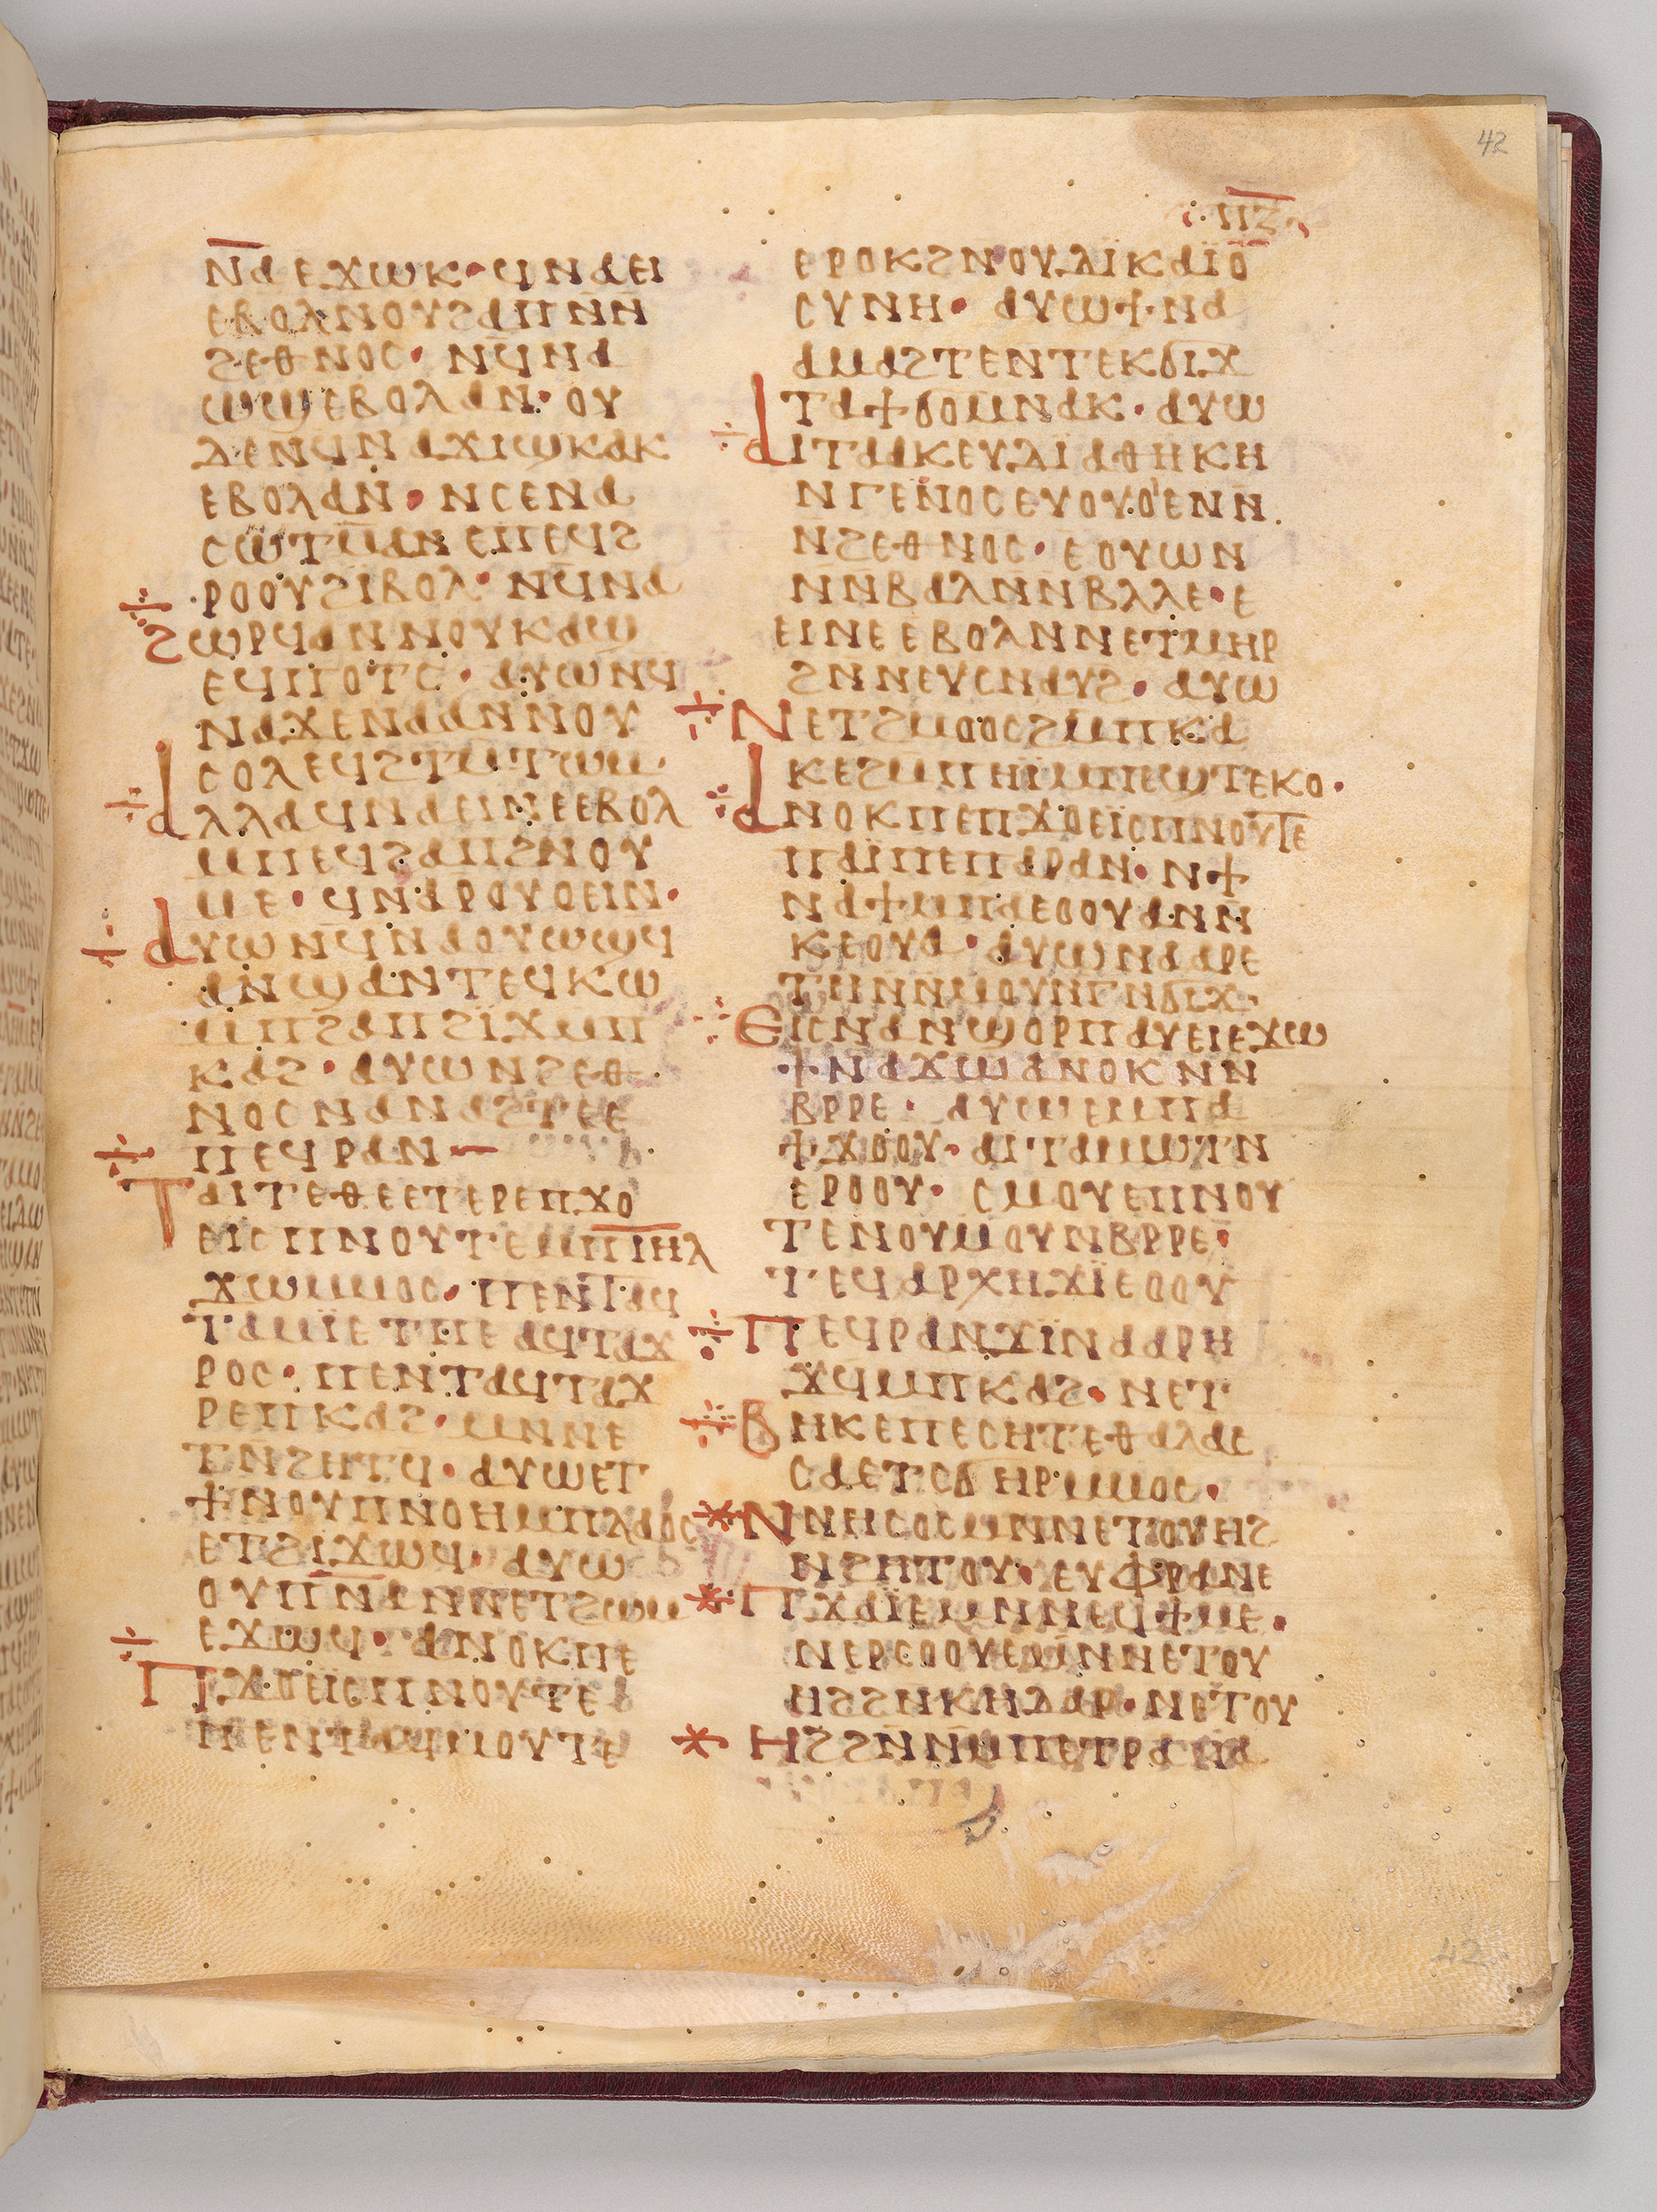 42
ⲡⲍ
ⲛⲁⲉϫⲱⲕ· ϥⲛⲁⲉⲓ
ⲉⲃⲟⲗⲛⲟⲩϩⲁⲡⲛ̄ⲛ̄
ϩⲉⲑⲛⲟⲥ· ⲛϥⲛⲁ
ⲱϣⲉⲃⲟⲗⲁⲛ· ⲟⲩ
ⲇⲉⲛϥⲛⲁϫⲓϣⲕⲁⲕ
ⲉⲃⲟⲗⲁⲛ· ⲛⲥⲉⲛⲁ
ⲥⲱⲧⲙ̄ⲁⲛⲉⲡⲉϥϩ
ⲣⲟⲟⲩϩⲓⲃⲟⲗ· ⲛϥⲛⲁ
ϩⲱⲣϥⲁⲛⲛⲟⲩⲕⲁϣ
ⲉϥⲡⲟⲧⲥ· ⲁⲩⲱⲛϥ
ⲛⲁϫⲉⲛⲁⲁⲛⲛⲟⲩ
ⲥⲟⲗⲉϥϩⲧⲙ̄ⲧⲱⲙ
ⲁⲗⲗⲁϥⲛⲁⲉⲓⲛⲉⲉⲃⲟⲗ
ⲙⲡⲉϥϩⲁⲡϩⲛⲟⲩ
ⲙⲉ· ϥⲛⲁⲣⲟⲩⲟⲉⲓⲛ·
ⲁⲩⲱⲛ̄ϥⲛⲁⲟⲩⲱϣϥ
ⲁⲛϣⲁⲛⲧⲉϥⲕⲱ
ⲙⲡϩⲁⲡϩⲓϫⲙⲡ
ⲕⲁϩ· ⲁⲩⲱⲛϩⲉⲑ
ⲛⲟⲥⲛⲁⲛⲁϩⲧⲉⲉ
ⲡⲉϥⲣⲁⲛ—
ⲧⲁⲓⲧⲉⲑⲉⲉⲧⲉⲣⲉⲡϫⲟ
ⲉⲓⲥⲡⲛⲟⲩⲧⲉⲙⲡⲓⲏⲗ
ϫⲱⲙⲙⲟⲥ· ⲡⲉⲛⲧⲁϥ
ⲧⲁⲙⲓ̈ⲉⲧⲡⲉⲁϥⲧⲁϫ
ⲣⲟⲥ· ⲡⲉⲛⲧⲁϥⲧⲁϫ
ⲣⲉⲡⲕⲁϩ· ⲙⲛⲛⲉ
ⲧⲛϩⲏⲧϥ· ⲁⲩⲱⲉⲧ
ϯⲛⲟⲩⲡⲛⲟⲏⲙⲡⲗⲁⲟⲥ
ⲉⲧϩⲓϫⲱϥ· ⲁⲩⲱ
ⲟⲩⲡⲛ̄ⲁⲛⲛⲉⲧϩⲱⲙ
ⲉϫⲱϥ· ⲁⲛⲟⲕⲡⲉ
ⲡϫⲟⲉⲓ̈ⲥⲡⲛⲟⲩⲧⲉ
ⲡⲉⲛⲧⲁϥⲙⲟⲩⲧⲉ
ⲉⲣⲟⲕϩⲛⲟⲩⲇⲓ̈ⲕⲁⲓ̈ⲟ
ⲥⲩⲛⲏ· ⲁⲩⲱϯⲛⲁ
ⲁⲙⲁϩⲧⲉⲛⲧⲉⲕϭⲓϫ
ⲧⲁϯϭⲟⲙⲛⲁⲕ· ⲁⲩⲱ
ⲁⲓⲧⲁⲁⲕⲉⲩⲇⲓⲁⲑⲏⲕⲏ
ⲛⲅⲉⲛⲟⲥⲉⲩⲟⲩⲟⲉⲓⲛⲛ
ⲛϩⲉⲑⲛⲟⲥ· ⲉⲟⲩⲱⲛ
ⲛⲛⲃⲁⲗⲛⲛⲃⲗⲗⲉ· ⲉ
ⲉⲓⲛⲉⲉⲃⲟⲗⲛⲛⲉⲧⲙⲏⲣ
ϩⲛⲛⲉⲩⲥⲛⲁⲩϩ· ⲁⲩⲱ
ⲛⲉⲧϩⲙⲟⲟⲥϩⲙⲡⲕⲁ
ⲕⲉϩⲙⲡⲏⲓⲙⲡⲉϣⲧⲉⲕⲟ·
ⲁⲛⲟⲕⲡⲉⲡϫⲟⲉⲓ̈ⲥⲡⲛⲟⲩⲧⲉ
ⲡⲁⲓ̈ⲡⲉⲡⲁⲣⲁⲛ· ⲛϯ
ⲛⲁϯⲙⲡⲁⲉⲟⲟⲩⲁⲛⲛ
ⲕⲉⲟⲩⲁ· ⲁⲩⲱⲛⲁⲁⲣⲉ
ⲧⲏⲛⲛⲙⲟⲩⲛⲅⲛϭⲓϫ·
ⲉⲓⲥⲛⲁⲛϣⲟⲣⲡⲁⲩⲉⲓⲉϫⲱ
ϯⲛⲁϫⲱⲁⲛⲟⲕⲛⲛ
ⲃⲣⲣⲉ· ⲁⲩⲱⲉⲙⲡⲁ
ϯϫⲟⲟⲩ· ⲁⲓⲧⲁⲙⲱⲧⲛ
ⲉⲣⲟⲟⲩ· ⲥⲙⲟⲩⲉⲡⲛⲟⲩ
ⲧⲉⲛⲟⲩⲙⲟⲩⲛⲃⲣⲣⲉ·
ⲧⲉϥⲁⲣⲭⲏϫⲓ̈ⲉⲟⲟⲩ
ⲡⲉϥⲣⲁⲛϫⲓⲛⲁⲁⲣⲏ
ϫϥⲙⲡⲕⲁϩ· ⲛⲉⲧ
ⲃⲏⲕⲉⲡⲉⲥⲏⲧⲉⲑⲁⲗⲁⲥ
ⲥⲁⲉⲧⲥϭⲏⲣⲙⲙⲟⲥ·
ⲛⲛⲏⲥⲟⲥⲙⲛⲛⲉⲧⲟⲩⲏϩ
ⲛϩⲏⲧⲟⲩ· ⲉⲩⲫⲣⲁⲛⲉ
ⲡϫⲁⲓ̈ⲉⲙⲛⲛⲉϥϯⲙⲉ·
ⲛⲉⲣⲥⲟⲟⲩⲉⲙⲛⲛⲉⲧⲟⲩ
ⲏϩϩⲛⲕⲏⲇⲁⲣ· ⲛⲉⲧⲟⲩ
ⲏϩϩⲛⲛⲙⲡⲉⲧⲣⲁ
42